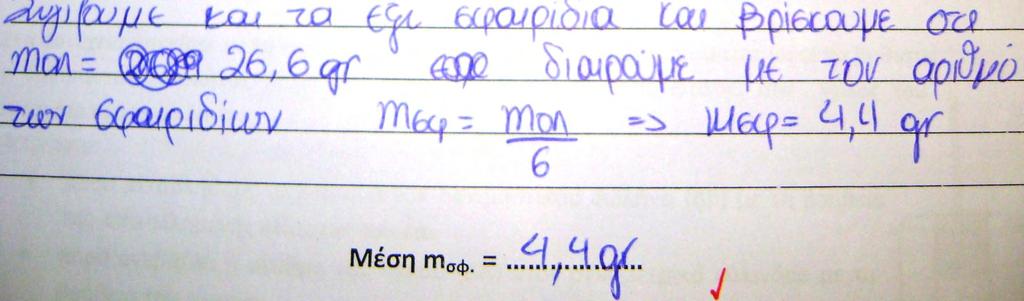 Ζυγίζουμε και τα έξι σφαιρίδια και βρίσκουμε οτι
mολ = 26,6 gr διαιρούμε με τον αριθμό
των σφαιριδίων mσφ = mολ/6 => mσφ = 4,4 gr
Μέση mσφ. = 4,4 gr